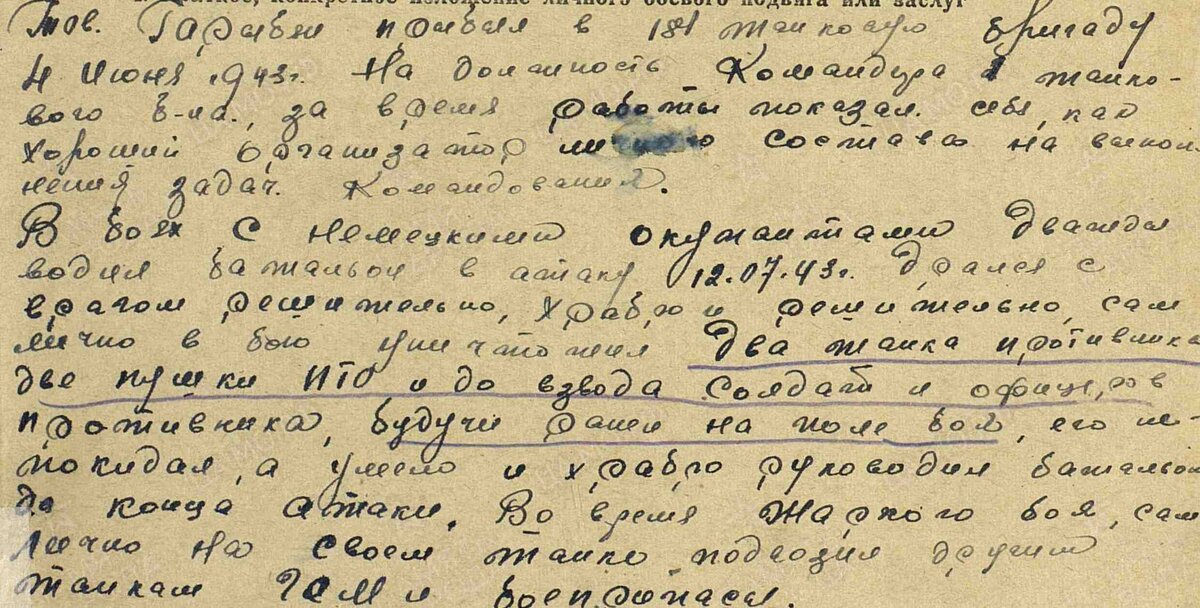 краткое, конкретное изложение личного боевого подвига или заслуг
Тов. Гарибян прибыл в 181 танковую бригаду
4 Июня 1943г. На должность Командира 1 танко-
вого б-на., за время работы показал себя, как
хороший организатор личного состава на выпол
нения задач. Командования.
В боях с немецкими окупантами дважды
водил батальон в атаку 12.07.43г. Дрался с
врагом решительно, храбро и решительно, сам
лично в бою уничтожил два танка противника
две пушки ПТО и до взвода солдат и офицеров
противника, будучи ранен на поле боя, его не
покидал, а умело и храбро руководил батальон
до конца атаки. Во время жаркого боя, сам
лично на своем танке подвозил другим
танкам ГСМ и боеприпасы.